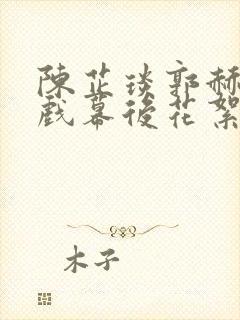 陳芷琰郭赫
戲幕後花絮
木子